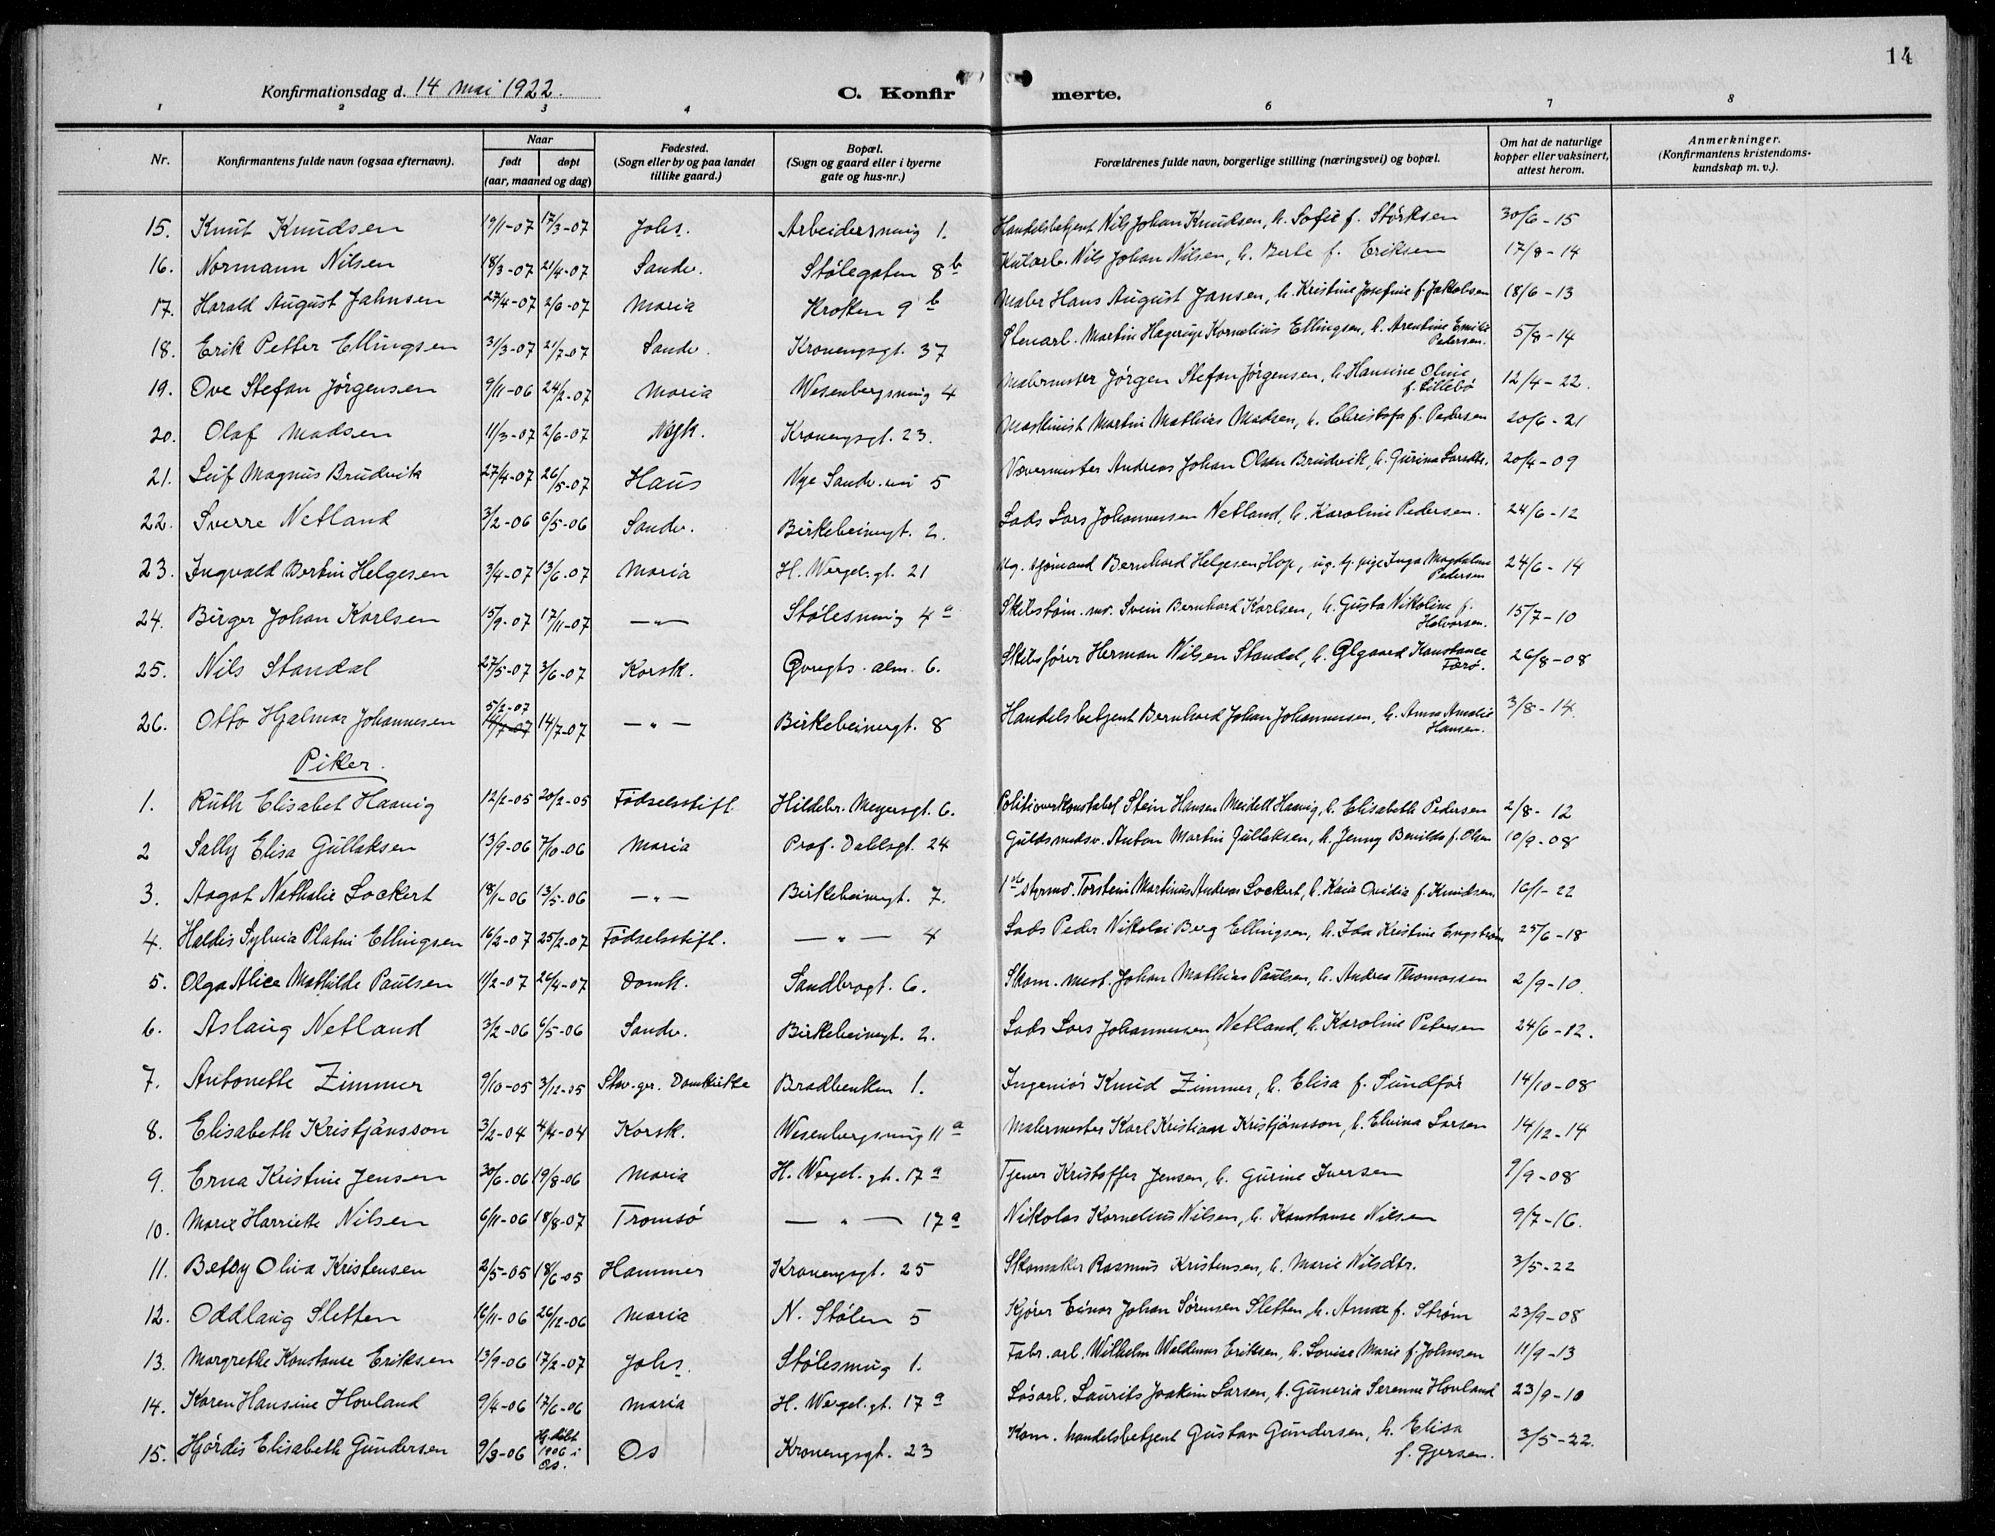 14
Konfirmationsdag d. 14 mai 1922.
C. Konfirmerte.
1 2 3 4 5 6 7 8
Nr. Konfirmantens fulde navn (ogsaa efternavn). Naar født døpt (aar, maaned og dag) Fødested. (Sogn eller by og paa landet tillike gaard.) Bopæl. (Sogn og gaard eller i byerne gate og hus-nr.) Forældrenes fulde navn, borgerlige stilling (næringsvei) og bopæl. Om hat de naturlige kopper eller vaksinert, attest herom. Anmerkninger. (Konfirmantens kristendoms-kundskap m. v.).
15. Knut Knudsen 19/1-07 17/3-07 Johs. Arbeidersmug 1. Handelsbetjent Nils Johan Knudsen, h. Sofie f. Størksen 30/6-15
16. Normann Nilsen 18/3-07 21/4-07 Sandv. Stølegaten 8b Kularb. Nils Johan Nilsen, h. Berte f. Eriksen 17/8-14
17. Harald August Jahnsen 27/4-07 2/6-07 Maria Kroken 9b Maler Hans August Jansen, h. Kristine Josefine f. Jakobsen 18/6-13
18. Erik Petter Ellingsen 31/3-07 21/7-07 Sandv. Kronengsgt. 37 Stenarb. Martin Hagerup Kornelius Ellingsen, h. Arentine Emilie Pedersen. 5/8-14
19. Ove Stefan Jørgensen 9/11-06 24/2-07 Maria Wesenbergsmug 4 Malermester Jørgen Stefan Jørgensen, h. Hansine Oline f. Lillebø 12/4-22.
20. Olaf Madsen 11/3-07 2/6-07 Nyk. Kronengsgt. 23. Maskinist Martin Mathias Madsen, h. Christofa f. Pedersen 20/6-21
21. Leif Magnus Brudvik 27/4-07 26/5-07 Haus Nye Sandv.vei 5 Vævermester Andreas Johan Olsen Brudvik, h. Gurina Larsdtr. 20/4-09
22. Sverre Netland 3/2-06 6/5-06 Sandv. Birkebeinergt. 2. Lods Lars Johannessen Netland, h. Karoline Pedersen. 24/6-12
23. Ingvald Bertin Helgesen 3/4-07 13/6-07 Maria H. Wergel.gt. 21 Ug. sjømand Bernhard Helgesen Hop, ug. tj. pige Inga Magdalene Pedersen 24/6-14
24. Birger Johan Karlsen 15/9-07 17/11-07 —"— Stølesmug 4a Skibstøm. mr. Svein Bernhard Karlsen, h. Gusta Nikoline f. Halvorsen. 15/7-10
25. Nils Standal 27/5-07 3/6-07 Korsk. Øvregts. alm. 6. Skibsfører Herman Nilsen Standal, h. Olgaard Konstance Færø. 26/8-08
26. Otto Hjalmar Johannesen 5/2-07 14/7-07 14/7-07 —"— Birkebeinergt. 8 Handelsbetjent Bernhard Johan Johannessen, h. Anna Amalie Hansen. 3/8-14.
Piker.
1. Ruth Elisabet Haavig 12/2-05 20/2-05 Fødselsstift. Hildebr. Meyersgt. 6. Politioverkonstabel Stein Hansen Meidell Haavig, h. Elisabeth Pedersen 2/8-12
2 Sally Elisa Gullaksen 13/9-06 7/10-06 Maria Prof. Dahlsgt. 24 Guldsmedsv. Anton Martin Gullaksen, h. Jenny Benilde f. Olsen 10/9-08
3. Aagot Nathalie Lockert 18/1-06 13/5-06 —"— Birkebeinergt. 7. 1ste styrmd. Torstein Martinus Andreas Lockert, h. Kaia Ovidia f. Knudsen 16/1-22
4. Haldis Sylvia Platni Ellingsen 16/2-07 25/2-07 Fødselsstift. —"— 4 Lods Peder Nikolai Berg Ellingsen, h. Ida Kristine Engstrøm 25/6-18
5. Olga Alice Mathilde Paulsen 11/2-07 26/4-07 Domk. Sandbrogt. 6. Skom. mest. Johan Mathias Paulsen, h. Andrea Thomassen 2/9-10.
6. Aslaug Netland 3/2-06 6/5-06 Sandv. Birkebeinergt. 2. Lods Lars Johannessen Netland, h. Karoline Petersen 24/6-12.
7. Antonette Zimmer 9/10-05 3/12-05 Stav.ger. Domkirke Bradbenken 1. Ingeniør Knud Zimmer, h. Elisa f. Sundfør 14/10-08
8. Elisabeth Kristjánsson 3/2-04 4/4-04 Korsk. Wesenbergsmug 11a Malermester Karl Kristian Kristjánsson, h. Elvina Larsen 14/12-14
9. Erna Kristine Jensen 30/6-06 19/8-06 Maria H. Wergel.gt. 17a Tjener Kristoffer Jensen, h. Gurine Iversen 9/9-08
10. Marie Harriette Nilsen 6/11-06 18/8-07 Tromsø —"— 17a Nikolas Kornelius Nilsen, h. Konstanse Nilsen 9/7-16.
11. Betsy Oliva Kristensen 2/5-05 18/6-05 Hammer Kronengsgt. 25 Skomaker Rasmus Kristensen, h. Marie Nilsdtr. 3/5-22
12. Oddlaug Sletten 16/11-06 26/12-06 Maria N. Stølen 5 Kjører Einar Johan Sørensen Sletten, h. Anna f. Strøm 23/9-08
13. Margrethe Konstanse Eriksen 13/9-06 17/2-07 Johs. Stølesmug 1. Fabr. arb. Wilhelm Waldemar Eriksen, h. Lovise Marie f. Johnsen 11/9-13
14. Karen Hansine Hovland 9/4-06 17/6-06 Maria H. Wergel.gt. 17a Løsarb. Laurits Joakim Larsen, h. Guneria Serenne Hovland 23/9-10
15. Hjørdis Elisabeth Gundersen 9/3-06 Hj.døbt 1906 i Os. Os Kronengsgt. 23 Kom. handelsbetjent Gustav Gundersen, h. Elisa f. Gjersen. 3/5-22.